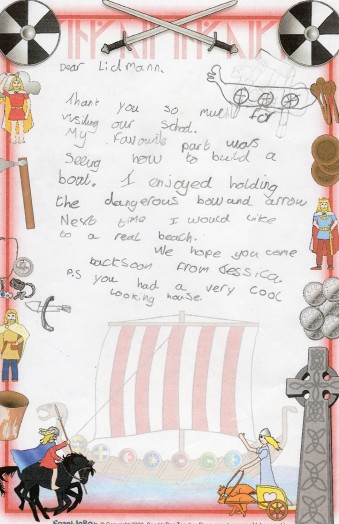 Dear Lidmann.
Thank you so much for
visiting our school.
My favourite part was
Seeing how to build a
boat. I enjoyed holding
the dangerous bow and arrow
Next time I would like
to a real beach.
We hope you come
back soon From Jessica.
P.S you had a very cool
looking house.